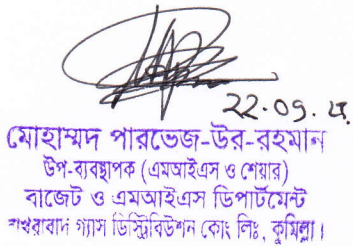 ২২.০৯.
মোহাম্মদ পারভেজ-উর-রহমান
উপ-ব্যবস্থাপক (এমআইএস ও শেয়ার)
বাজেট ও এমআইএস ডিপার্টমেন্ট
বাখরাবাদ গ্যাস ডিস্ট্রিবিউশন কোং লিঃ, কুমিল্লা।